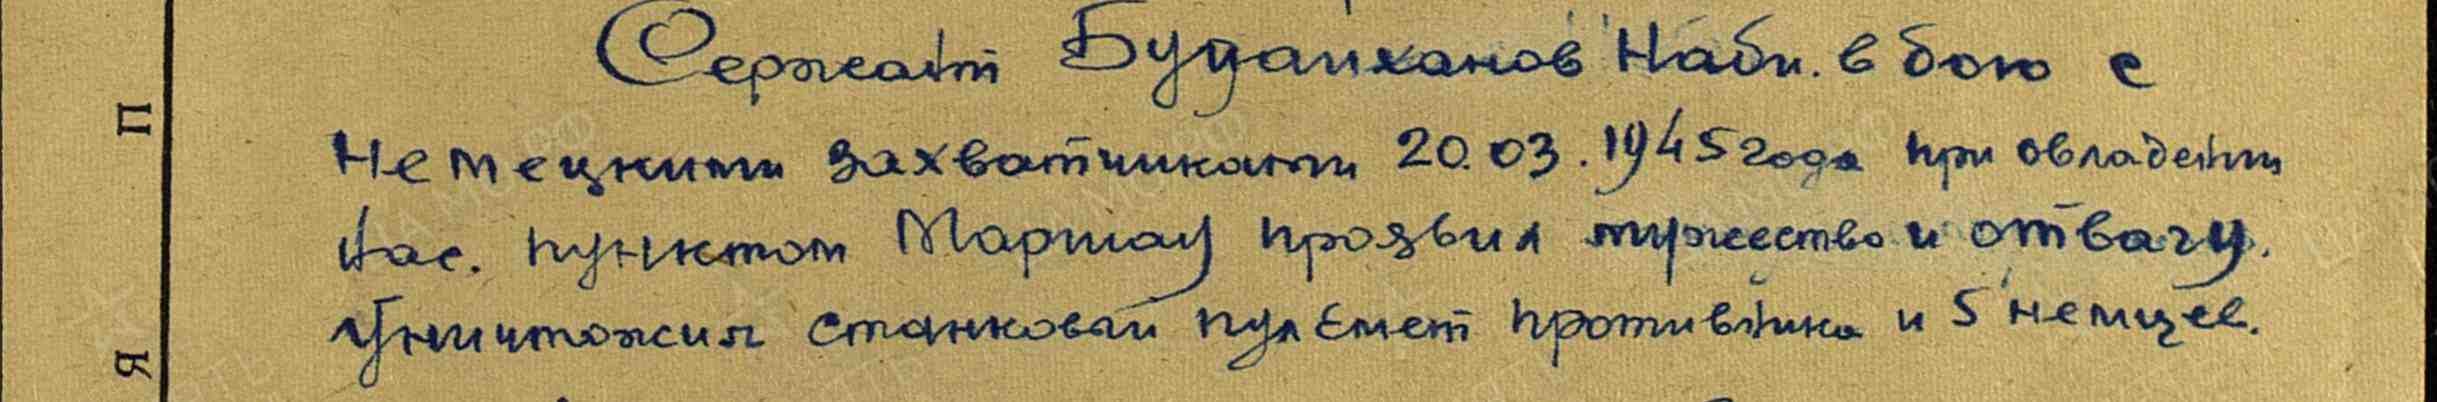 Сержант Будайханов Наби. в бою с
П
Немецкими захватчиками 20.03.1945 года при овладении
Нас. пунктом Маршау проявил мужество и отвагу.
Уничтожил станковый пулемет противника и 5 немцев.
Я